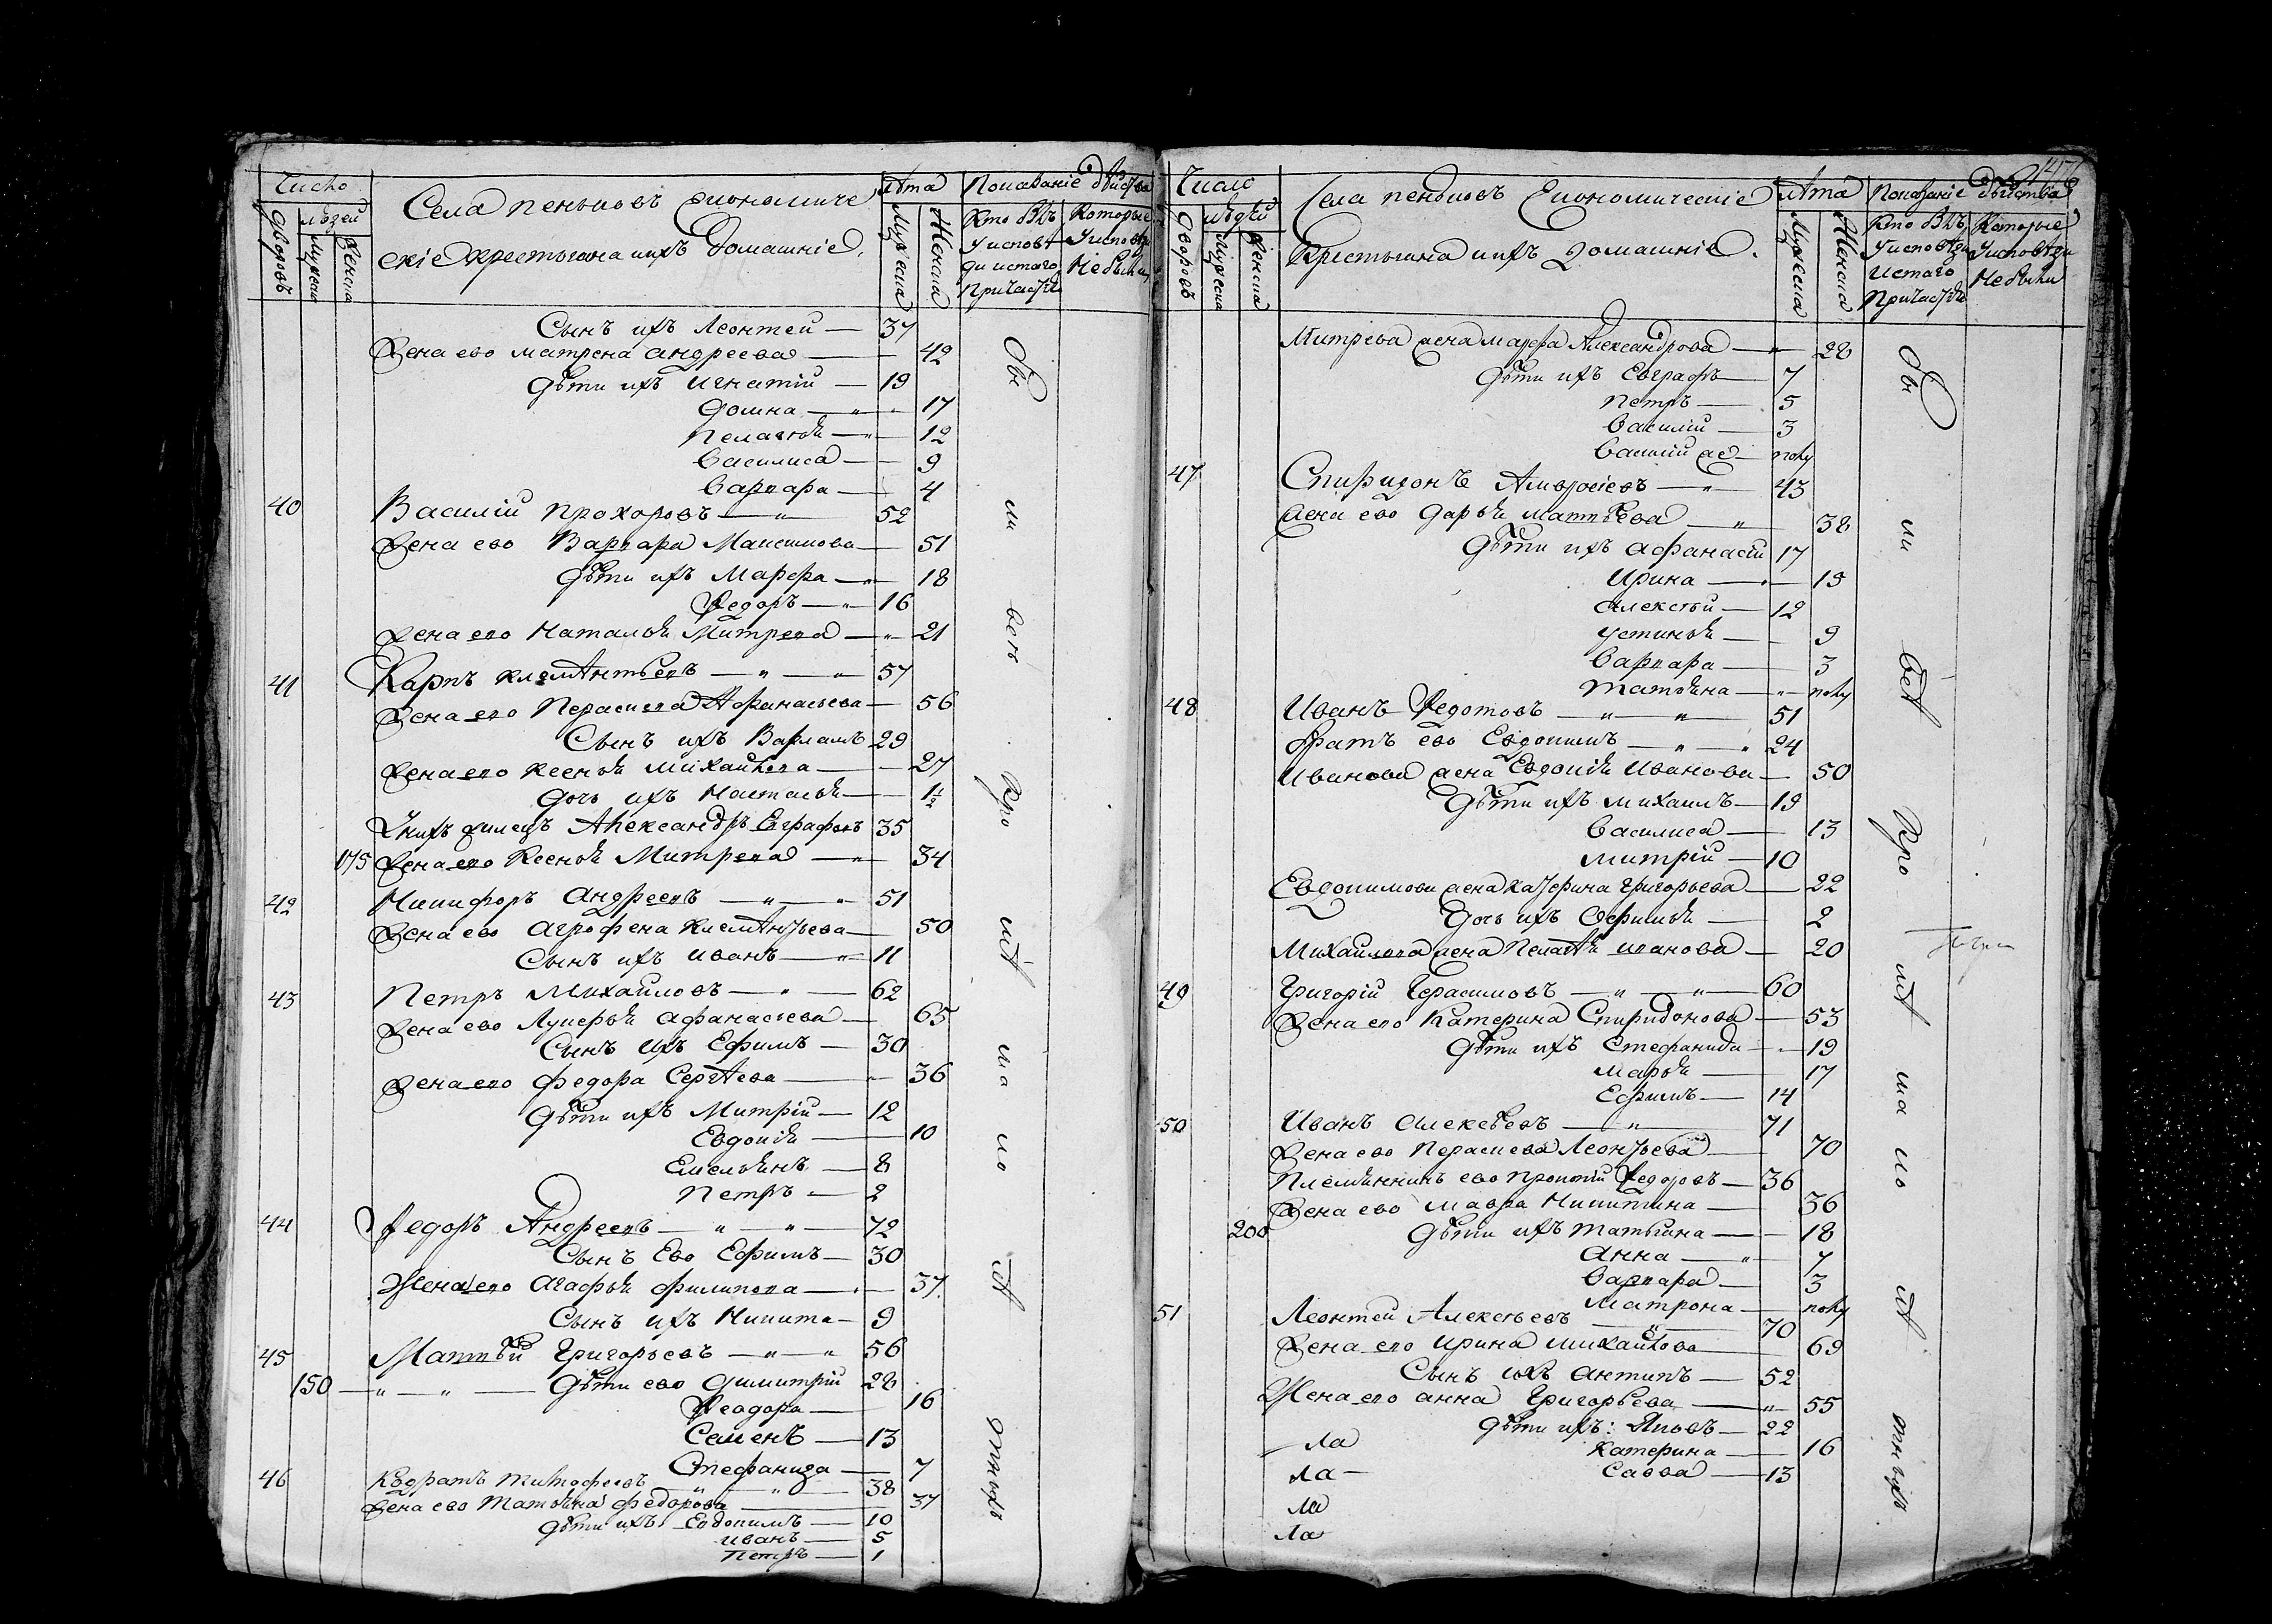 Число
Дворовъ
людей
Мужеска
Женска
Села пеньковъ Економиче
скіе хрестьяна иихъ домашніе.
лѣта
Мужеска
Женска
Показаніе дѣйства
Кто былъ
Уиспов
ди истаго
Причастія
Которые
Уисповѣди
Небыли
Сынъ ихъ Леонтеи — 37
Жена ево матрена андреева — 42
Дѣти ихъ игнатіи — 19
Домна — 17
Пелагѣя — 12
Василиса — 9
Варвара — 4
40 Василіи прохоровъ — 52
Жена ево Варвара Максимова — 51
Дѣти ихъ Марфа — 18
Ѳедоръ — 16
Жена ево Наталья Митрева — 21
41 Карпъ клемѣнтьевъ — 57
Жена ево Параскева Афанасьева — 56
Сынъ ихъ Варламъ 29
Жена ево ксенья михаилова — 27
Дочь ихъ Настасья — 1½
Унихъ Александръ Евграфовъ 35
175 Жена ево Ксенья Митрева — 34
42 Никифоръ андреевъ — 51
Жена ево Агрофена клемѣнтьева — 50
Сынъ ихъ иванъ — 11
43 Петръ Михаиловъ — 62
Жена ево Лукерья афанасьева — 65
Сынъ ихъ Ефимъ — 30
Жена ево федора Сергѣева — 36
Дѣти ихъ Митріи — 12
Евдокія — 10
Емельянъ — 8
Петръ — 2
44 Ѳедоръ Андреевъ — 72
Сынъ Ево Ефимъ — 30
Жена ево Агафья филипова — 37
Сынъ ихъ Никита — 9
45 Матвѣй Григорьевъ — 56
150 — Дѣти ево Димитріи 28
Ѳеодора — 16
Семенъ — 13
Стефанида — 7
46 Кодратъ тимофеевъ — 38
Жена ево татьяна федорова — 37
Дѣти ихъ Евдокимъ — 10
иванъ — 5
Петръ — 1
бы
ли
вел
про
шѣ
ша
ло
лѣ
147
Число
Дворовъ
людей
Мужеска
Женска
Села пеньковъ Економическіе
Крестьяна иихъ домашніе.
лѣта
Мужеска
Женска
Показаніе дѣйства
Кто былъ
Уисповѣди
истаго
Причастія
Которые
Уисповѣди
Небыли
Митрева жена марфа Александрова — 28
Дѣти ихъ Евграфъ — 7
петръ — 5
Василіи — 3
Василіи же — полу
47 Спиридонъ Амвросіевъ — 43
жена ево дарья матвѣева — 38
Дѣти ихъ афанасіи 17
Ирина — 15
алексѣй — 12
устинья — 9
варвара — 3
татьяна — полу
48 Иванъ Ѳедотовъ — 51
братъ ево Евдокимъ — 24
Иванова жена Евдокія иванова — 50
Дѣти ихъ михаилъ — 19
Василиса — 13
митріи — 10
Евдокимова жена катерина григорьева — 22
Дочь ихъ Ефимья — 2
Михаилова жена Пелагѣя иванова — 20
49 Григоріи Герасимовъ — 60
Жена ево Катерина Спиридонова — 53
Дѣти ихъ Стефанида — 19
Марья — 17
Ефимъ — 14
50 Иванъ Алексѣевъ — 71
Жена ево Параскева Леонтьева — 70
Племянникъ ево прокопіи Ѳедоровъ — 36
Жена ево мавра Никитина — 36
200 Дѣти ихъ татьяна — 18
Анна — 7
варвара — 3
матрона — полу
51 Леонтеи Алексѣевъ — 70
Жена ево ирина михаилова — 69
Сынъ ихъ антипъ — 52
Жена ево анна григорьева — 55
Дѣти ихъ: Яковъ — 22
Катерина — 16
Савва — 13
Ла
Ла
Ла
Ла
бы
ли
вел
про
шѣ
ша
ло
лѣ